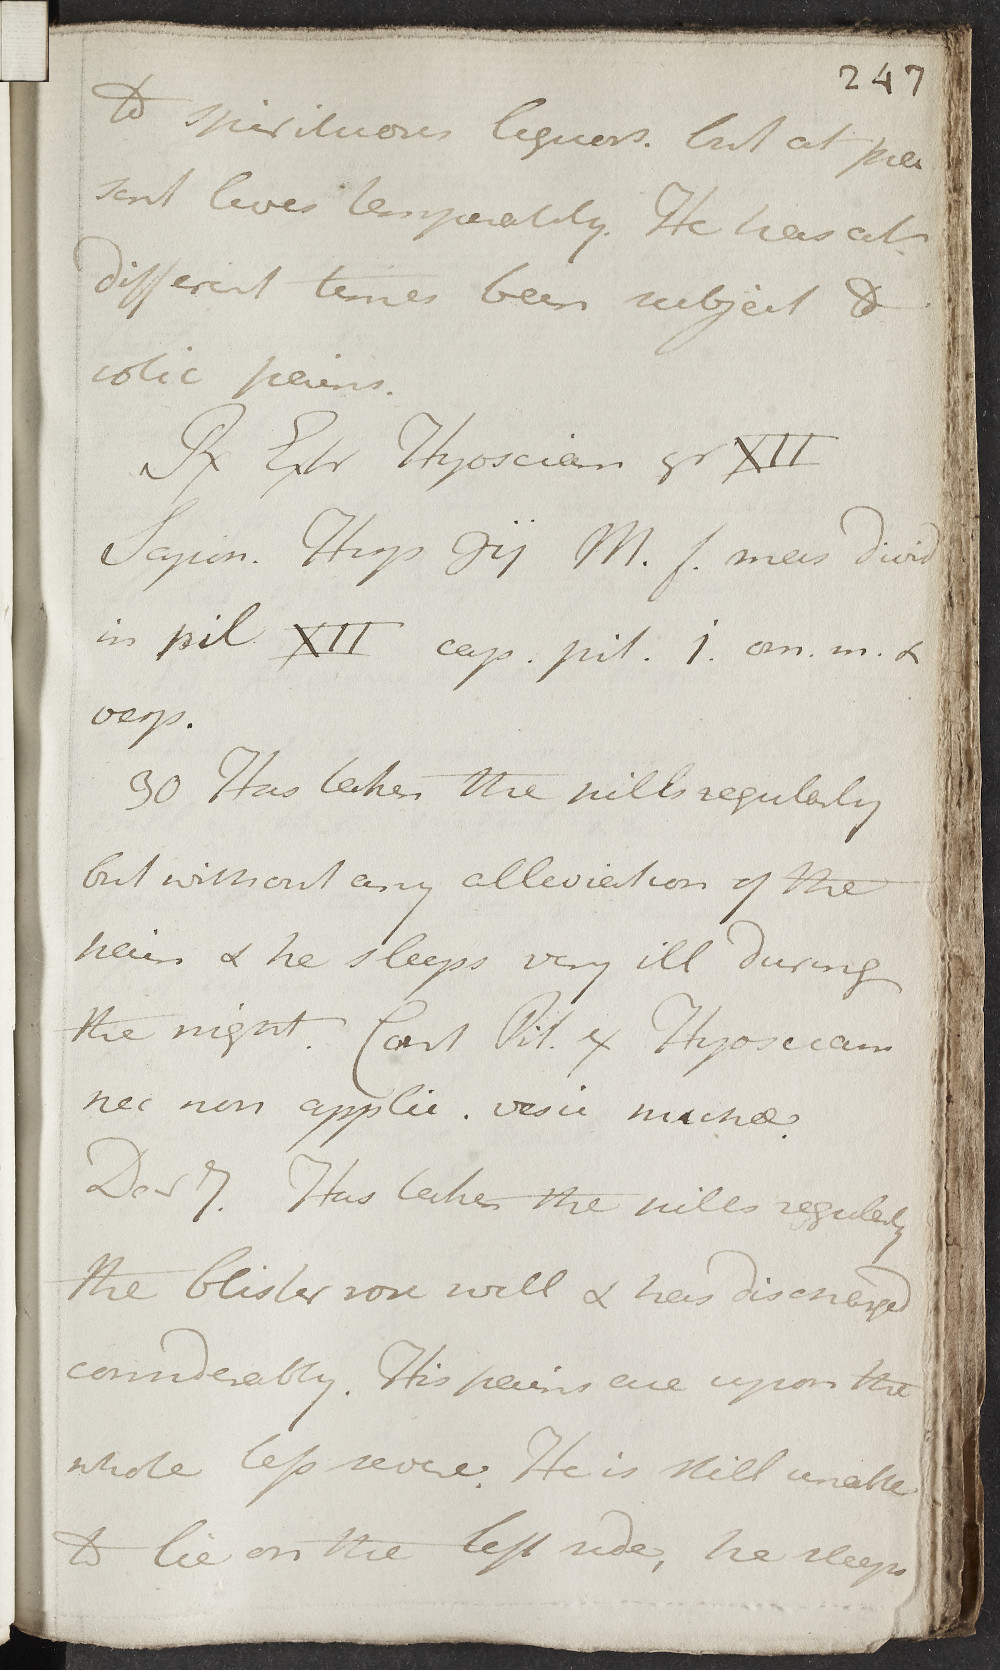 247
to spirituous liquors. but at pre
sent lives temperately. He has at
different times been subject to
colic pains.
℞ Extr Hyosciam gr XII
Sapon. Hisp ʒij M. f. mass divid
in pil XII cap. pil. j. om. m. &
vesp.
30 Has taken the pills regularly
but without any alleviation of the
pain & he sleeps very ill during
the night. Cont Pil. ex Hyosciam
nec non applic. vesic nuchæ.
Decr 7. Has taken the pills regularly
the blister rose well & has discharged
considerably. His pains are upon the
whole less severe. He is still unable
to lie on the left side, he sleeps